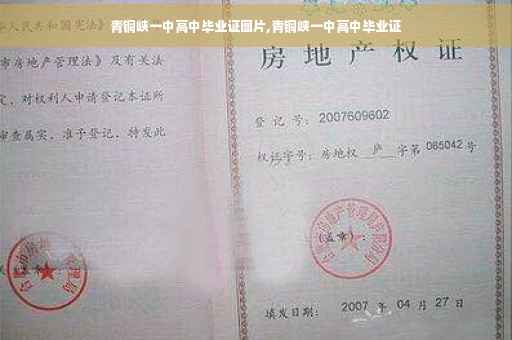 青铜峡一中高中毕业证图片,青铜峡一中高中毕业证
人民共和国宪法》
市房地产管理法》及有关法
定，对权利人申请登记本证所
审查属实，准予登记，特发此
房地产权证
登记号：2007609602
权证字号：房地权 庐 字第 065042 号
(盖章)：
填发日期：2007 年 04 月 27 日